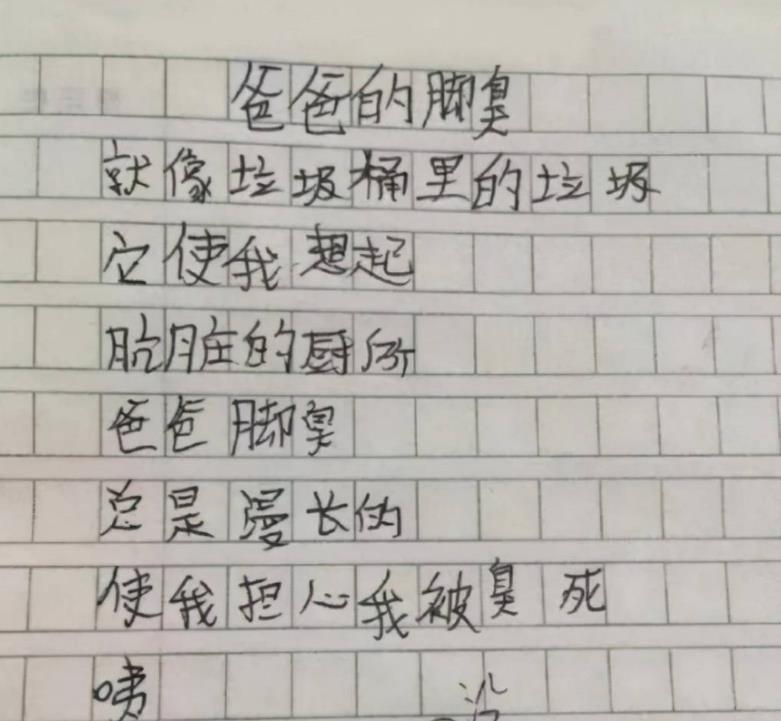 爸爸的脚臭
就像垃圾桶里的垃圾
它使我想起
肮脏的厨所
爸爸脚臭
总是漫长的
使我担心我被臭死
咦